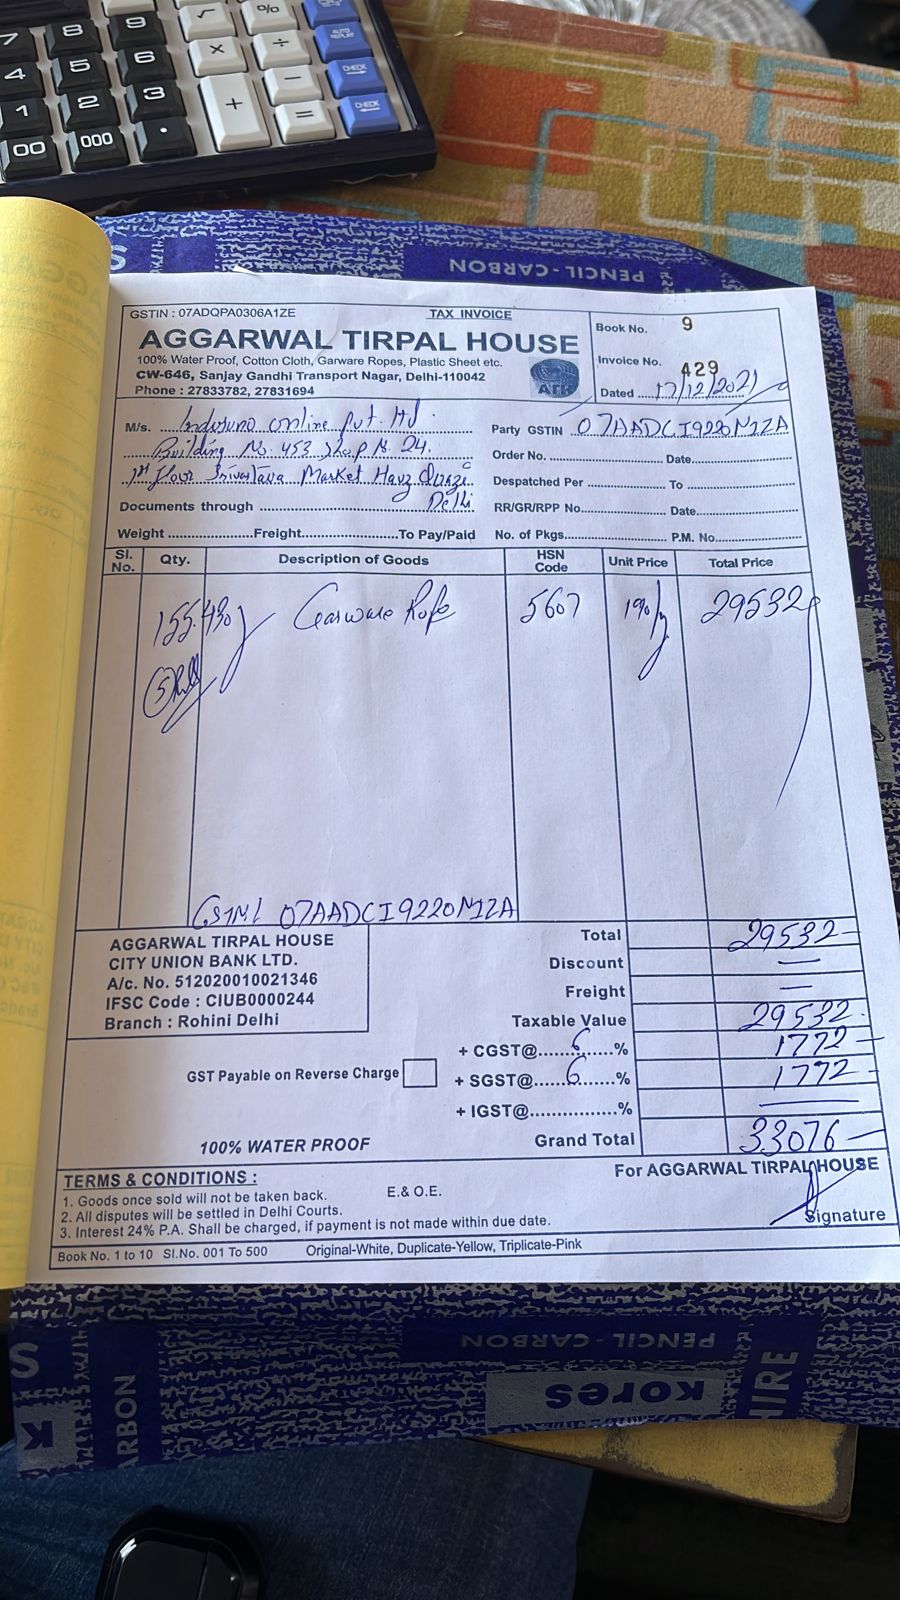 7 8 9 √ %
4 5 6 × ÷ AUTO REPLAY
1 2 3 + − CHECK
00 000 . = CHECK
PENCIL - CARBON
GSTIN : 07ADQPA0306A1ZE TAX INVOICE
AGGARWAL TIRPAL HOUSE
100% Water Proof, Cotton Cloth, Garware Ropes, Plastic Sheet etc.
CW-646, Sanjay Gandhi Transport Nagar, Delhi-110042
Phone : 27833782, 27831694
ATH
Book No. 9
Invoice No. 429
Dated 17/12/2021
M/s. online Pvt. Ltd.
Building No. 453 Shop No. 24.
1st floor Market Hauz Delhi
Party GSTIN 07AADCI9220N1ZA
Order No. Date
Despatched Per To
Documents through RR/GR/RPP No. Date
Weight Freight To Pay/Paid No. of Pkgs. P.M. No.
Sl. No. Qty. Description of Goods HSN Code Unit Price Total Price
155.430 Garware Rope 5607 190/ 29532
5
GSTN 07AADCI9220N1ZA
AGGARWAL TIRPAL HOUSE
CITY UNION BANK LTD.
A/c. No. 512020010021346
IFSC Code : CIUB0000244
Branch : Rohini Delhi
Total 29532
Discount —
Freight —
Taxable Value 29532
+ CGST@ 6 % 1772
GST Payable on Reverse Charge + SGST@ 6 % 1772
+ IGST@ % —
100% WATER PROOF Grand Total 33076
TERMS & CONDITIONS : E.& O.E.
1. Goods once sold will not be taken back.
2. All disputes will be settled in Delhi Courts.
3. Interest 24% P.A. Shall be charged, if payment is not made within due date.
For AGGARWAL TIRPAL HOUSE
Signature
Book No. 1 to 10 Sl.No. 001 To 500 Original-White, Duplicate-Yellow, Triplicate-Pink
PENCIL - CARBON
Kores